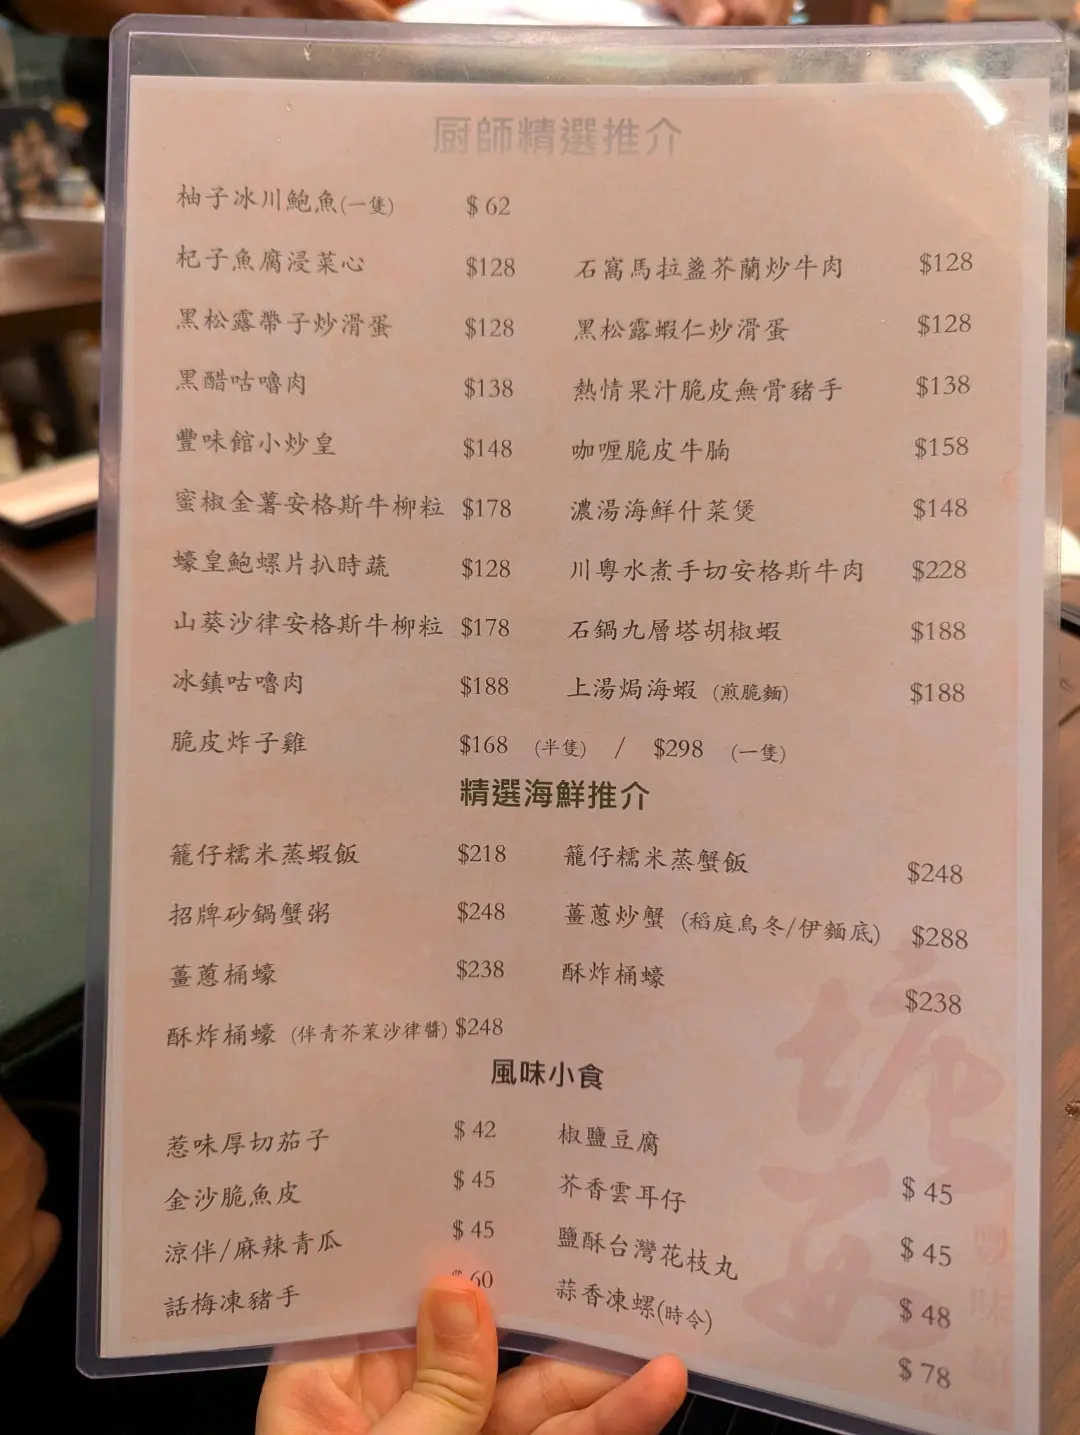 厨師精選推介
柚子冰川鮑魚(一隻) $ 62
杞子魚腐浸菜心 $128 石窩馬拉盞芥蘭炒牛肉 $128
黑松露帶子炒滑蛋 $128 黑松露蝦仁炒滑蛋 $128
黑醋咕嚕肉 $138 熱情果汁脆皮無骨豬手 $138
豐味館小炒皇 $148 咖喱脆皮牛腩 $158
蜜椒金薯安格斯牛柳粒 $178 濃湯海鮮什菜煲 $148
蠔皇鮑螺片扒時蔬 $128 川粵水煮手切安格斯牛肉 $228
山葵沙律安格斯牛柳粒 $178 石鍋九層塔胡椒蝦 $188
冰鎮咕嚕肉 $188 上湯焗海蝦 (煎脆麵) $188
脆皮炸子雞 $168 (半隻) / $298 (一隻)
精選海鮮推介
籠仔糯米蒸蝦飯 $218 籠仔糯米蒸蟹飯 $248
招牌砂鍋蟹粥 $248 薑蔥炒蟹 (稻庭烏冬/伊麵底) $288
薑蔥桶蠔 $238 酥炸桶蠔 $238
酥炸桶蠔 (伴青芥茉沙律醬) $248
風味小食
惹味厚切茄子 $ 42 椒鹽豆腐 $ 45
金沙脆魚皮 $ 45 芥香雲耳仔 $ 45
涼伴/麻辣青瓜 $ 45 鹽酥台灣花枝丸 $ 48
話梅凍豬手 $ 60 蒜香凍螺(時令) $ 78
豐味館